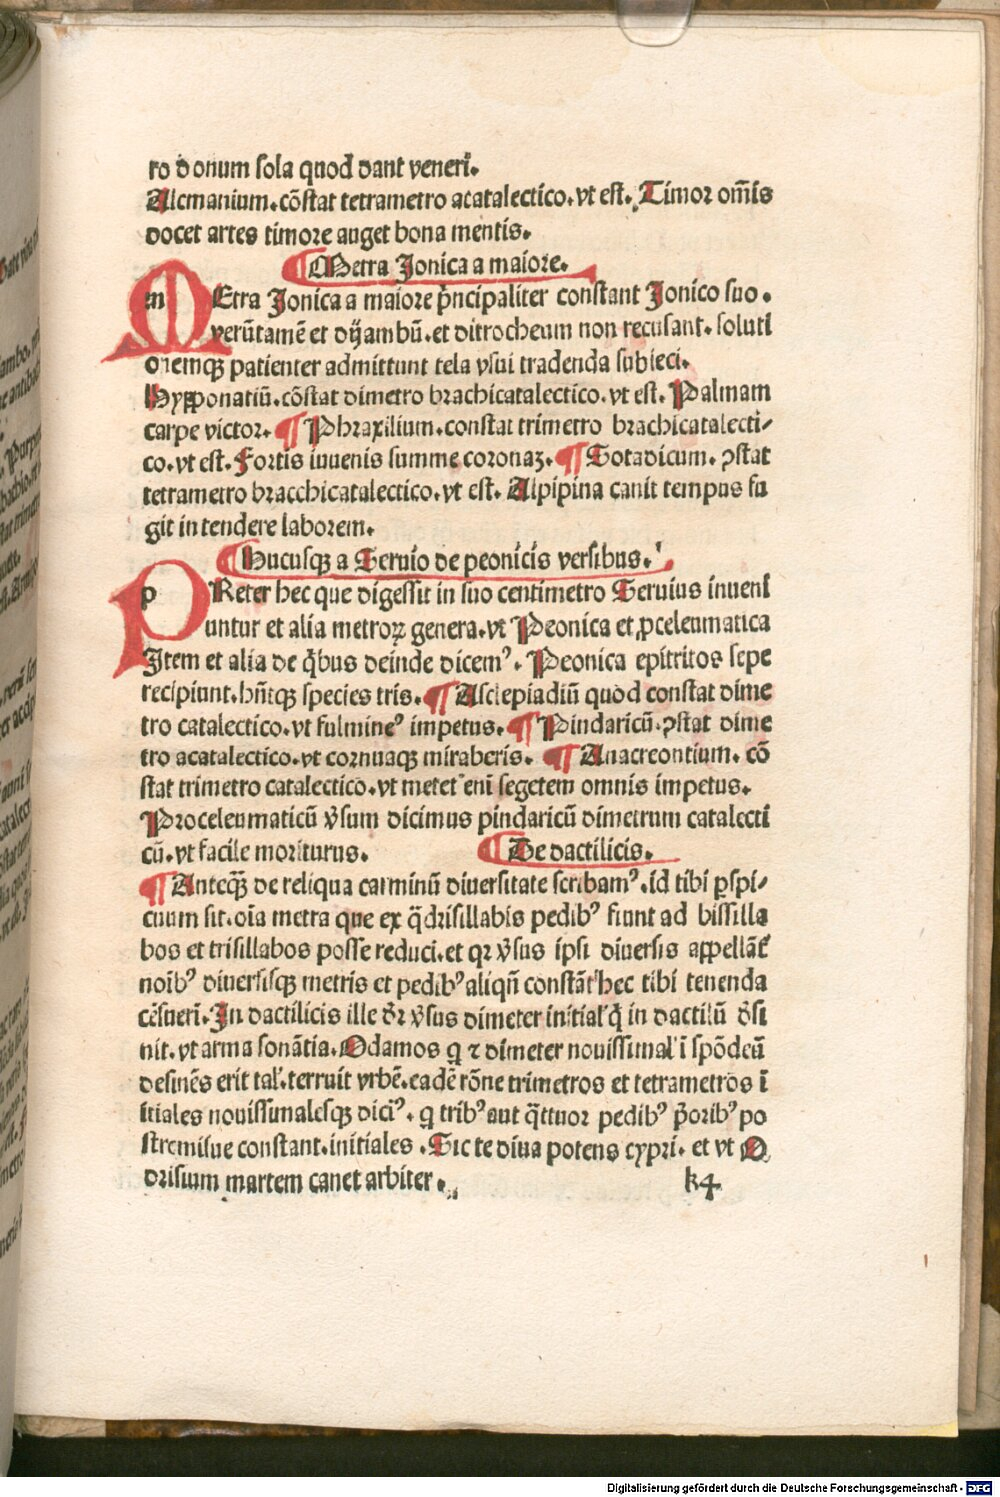 ro donum sola quod dant veneri.
Alcmanium.cōstat tetrametro acatalectico.vt est. Timor om̄is
docet artes timore auget bona mentis.
¶ Metra Jonica a maiore.
mEtra Jonica a maiore p̄ncipaliter constant Jonico suo.
verūtamē et dijambū.et ditrocheum non recusant. soluti
onemqꝫ patienter admittunt tela vsui tradenda subieci.
Hypponatiū.cōstat dimetro brachicatalectico.vt est. Palmam
carpe victor. ¶ Phraxilium.constat trimetro brachicatalecti⸗
co.vt est. Fortis iuuenis summe coronaꝫ. ¶ Sotadicum. ꝯstat
tetrametro bracchicatalectico.vt est. Alpipina canit tempus fu
git in tendere laborem.
¶ Hucusqꝫ a Seruio de peonicis versibus.
pReter hec que digessit in suo centimetro Seruius inueni
untur et alia metroꝝ genera.vt Peonica et ꝓceleumatica
Item et alia de q̄bus deinde dicemꝰ. Peonica epitritos sepe
recipiunt.hn̄tqꝫ species tris. ¶ Asclepiadiū quod constat dime
tro catalectico.vt fulmineꝰ impetus. ¶ Pindaricū.ꝯstat dime
tro acatalectico.vt cornuaqꝫ miraberis. ¶ Anacreontium. cō
stat trimetro catalectico.vt metet enī segetem omnis impetus.
Proceleumaticū v̄sum dicimus pindaricū dimetrum catalecti
cū.vt facile moriturus. ¶ De dactilicis.
¶ Anteqꝫ̄ de reliqua carminū diuersitate scribamꝰ.id tibi ꝑspi⸗
cuum sit.oīa metra que ex q̄drisillabis pedibꝰ fiunt ad bissilla
bos et trisillabos posse reduci.et qꝛ v̄sus ipsi diuersis appellāt᷑
noībꝰ diuersisqꝫ metris et pedibꝰ aliqn̄ constāt hec tibi tenenda
cēsueri.In dactilicis ille dr̄ v̄sus dimeter initial' q̄ in dactilū d̄si
nit.vt arma sonātia.Odamos q ꝛ dimeter nouissimal' ī spōdeū
desinēs erit tal'.terruit vrbē.eadē rōne trimetros et tetrametros ī
itiales nouissimalesqꝫ diciꝰ. q tribꝰ aut q̄ttuor pedibꝰ p̄oribꝰ po
stremisue constant.initiales .Sic te diua potens cypri. et vt O
drisium martem canet arbiter. k4
Digitalisierung gefördert durch die Deutsche Forschungsgemeinschaft - DFG